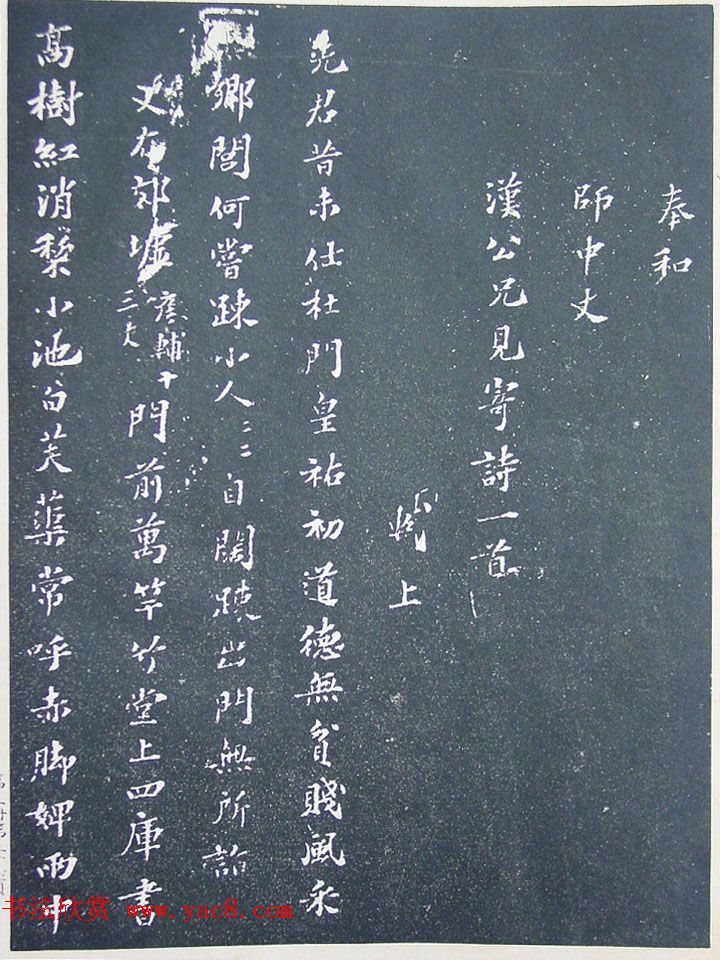 奉和
師中丈
漢公兄見寄詩一首
軾上
先君昔未仕杜門皇祐初道德無貧賤風采
鄉閭何嘗疎小人小人自闊疎出門無所詣
丈在郊墟
門前萬竿竹堂上四庫書
高樹紅消棃小池白芙蕖常呼赤脚婢雨中
书法欣赏 www.yac8.com